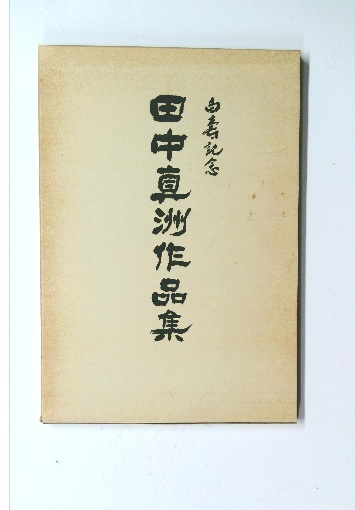 白壽記念
田中真洲作品集